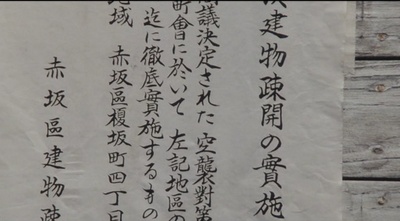 建物疎開の實施
議決定された 空襲對策
町會に於いて 左記地區の
迄に徹底實施するもの
地域 赤坂區榎坂町四丁目
赤坂區建物疎